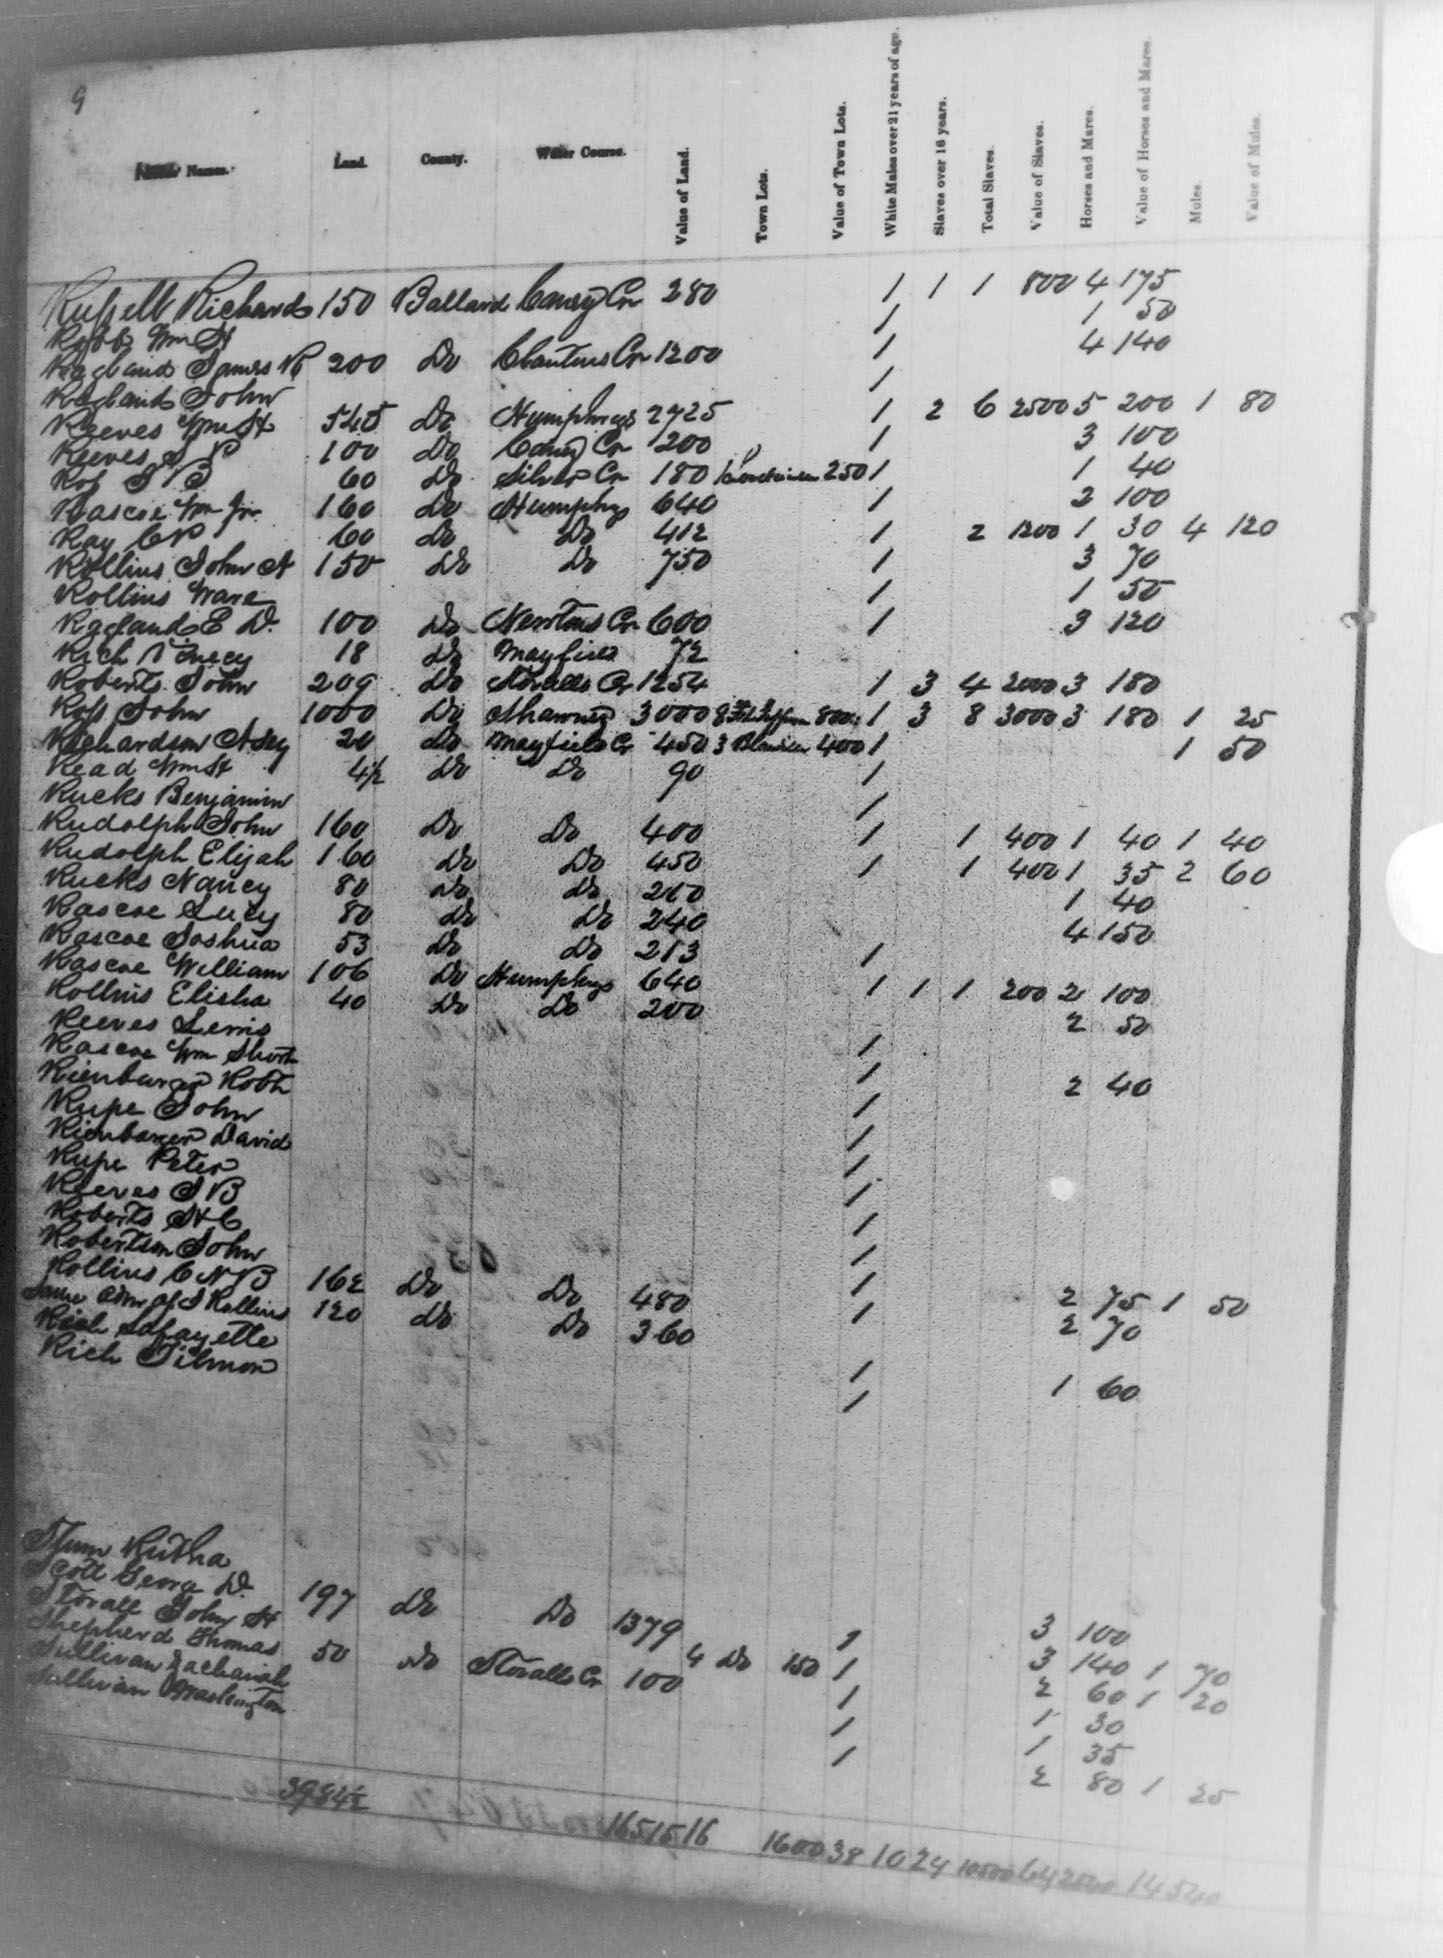 9
Names. Land. County. Water Course. Value of Land. Town Lots. Value of Town Lots. White Males over 21 years of age. Slaves over 16 years. Total Slaves. Value of Slaves. Horses and Mares. Value of Horses and Mares. Mules. Value of Mules.
Russell Richard 150 Ballard Caney Cr 280 1 1 1 800 4 175
Robb Wm H 1 1 50
Ragland James R 200 Do Clantons Cr 1200 1 4 140
Ragland John 1
Reeves Wm H 545 Do Humphreys 2725 1 2 6 2500 5 200 1 80
Reeves S P 100 Do Caney Cr 200 1 3 100
Roj J B 60 Do Silver Cr 180 250 1 1 40
Rascoe Wm Jr 160 Do Humphys 640 1 2 100
Ray C P 60 Do Do 412 1 2 1200 1 30 4 120
Rollins John A 150 Do Do 750 1 3 70
Rollins Ware 1 1 50
Ragland E D. 100 Do Newtons Cr 600 1 3 120
Rich 18 Do Mayfield 72
Roberts John 209 Do Stovalls Cr 1254 1 3 4 2000 3 180
Ross John 1000 Do Shawney 3000 8 Ft Jefferson 800 1 3 8 3000 3 180 1 25
Richardson 20 Do Mayfield Cr 450 3 Blandville 400 1 1 50
Read Wm H 4½ Do Do 90 1
Rucks Benjamin 1
Rudolph John 160 Do Do 400 1 1 400 1 40 1 40
Rudolph Elijah 160 Do Do 450 1 1 400 1 35 2 60
Rucks Nancy 80 Do Do 200 1 40
Rascoe Lucy 80 Do Do 240 4 150
Rascoe Joshua 53 Do Do 213 1
Rascoe William 106 Do Humphys 640 1 1 1 200 2 100
Rollins Elisha 40 Do Do 200 2 50
Reeves Lewis 1
Rascoe Wm Short 1 2 40
Rienbarger Robt 1
Rupe John 1
Rienbarger David 1
Rupe Peter 1
Reeves J B 1
Roberts H C 1
Robertson John 1
Rollins C N B 162 Do Do 480 1 2 75 1 50
Same Adm of J Rollins 120 Do Do 360 2 70
Rich Lafayette 1
Rich Tilmon 1 1 60
Rutha 3 100
Scott George D. 197 Do Do 1379 4 Do 150 1 3 140 1 70
Stovall John H 1 2 60 1 20
Shepherd Thomas 50 Do Stovalls Cr 100 1 1 30
Sullivan Zachariah 1 1 35
Sullivan Washington 1 2 80 1 25
3984½ 16515 16 1600 38 10 24 10500 64 2540 14 540